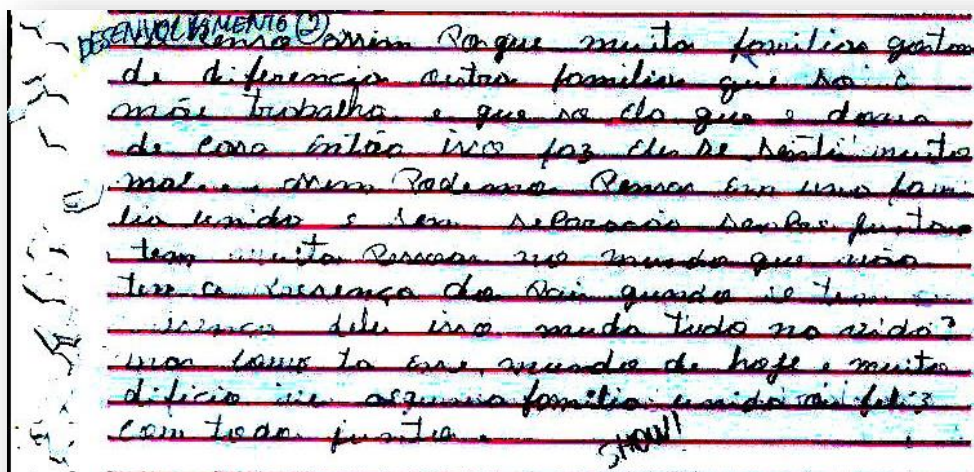 DESENVOLVIMENTO (2)
Penso assim Porque muita familias gostam
de diferencia outras familias que so a
mãe trabalha e que so ela que e dona
de casa então isso faz eles se senti muito
mal. assim Podemos Pensar em uma fami
lia unida e sem separação sempre juntas
tem muita Pessoas no mundo que não
tem a Presença do Pai quando se tem a
Presença dele isso muda tudo na vida?
mas como ta esse mundo de hoje e muito
dificio familia unida feliz
com todo juntos.
SHOW!